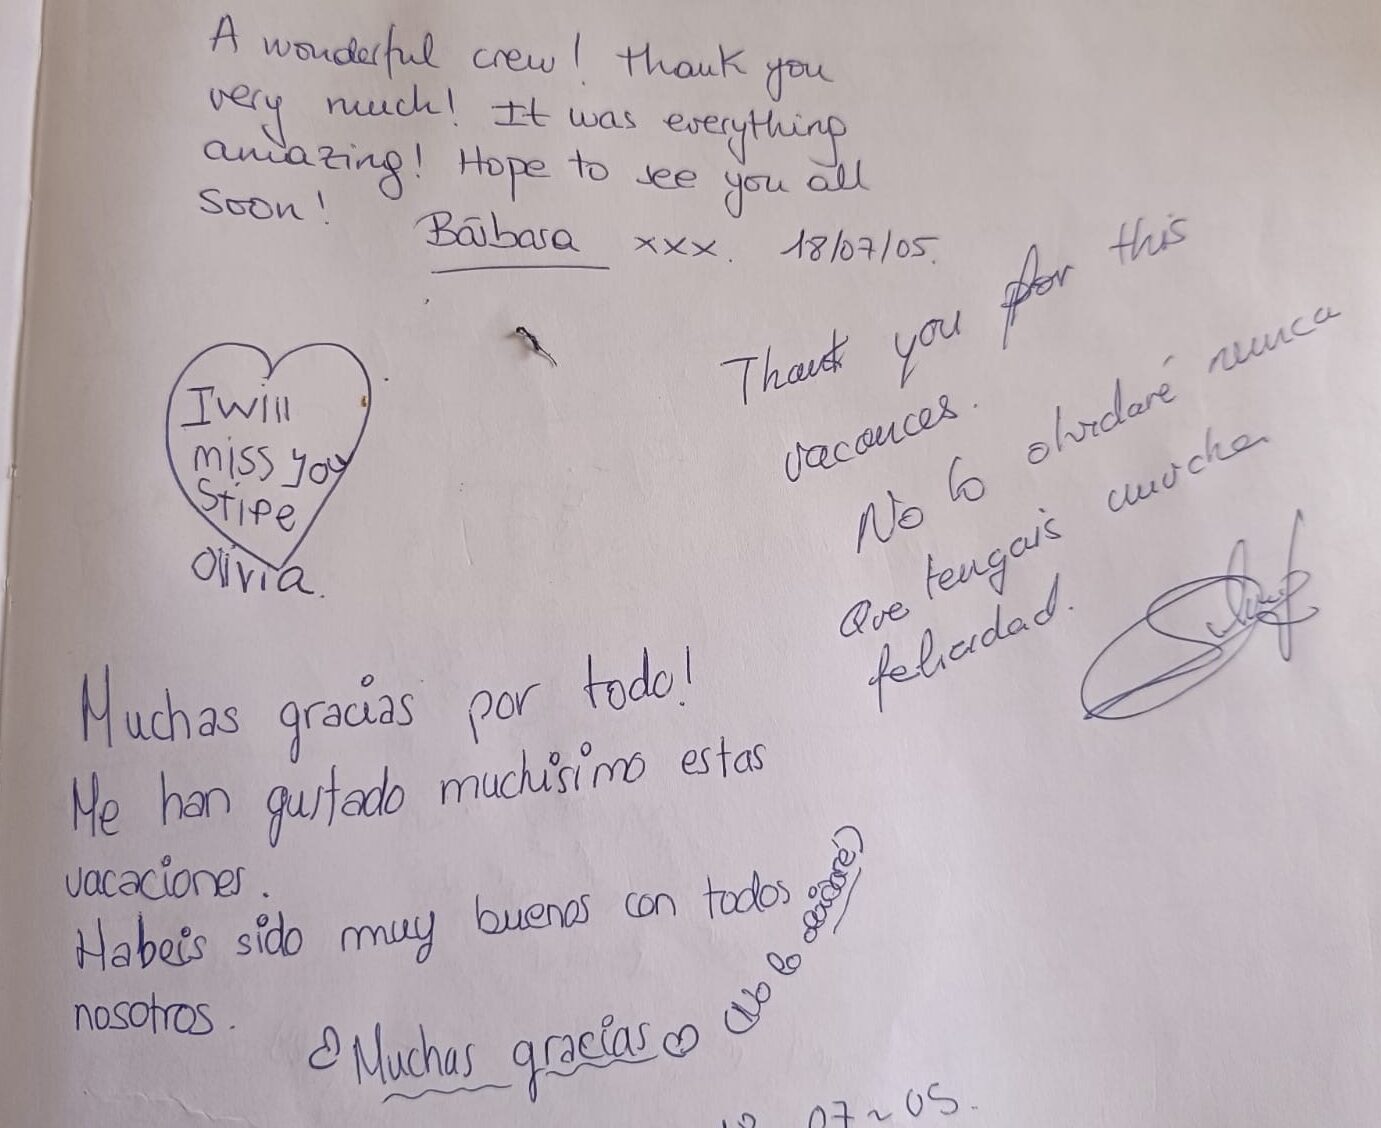 A wonderful crew! thank you
very much! It was everything
amazing! Hope to see you all
soon!
Bárbara xxx. 18/07/05.
I will
miss you
Stipe
Olivia.
Thank you for this
vacances.
No lo olvidaré nunca
Que tengais mucha
felicidad.
Muchas gracias por todo!
Me han gustado muchisimo estas
vacaciones.
Habeis sido muy buenos con todos
nosotros.
Muchas gracias
(No lo
07~05.